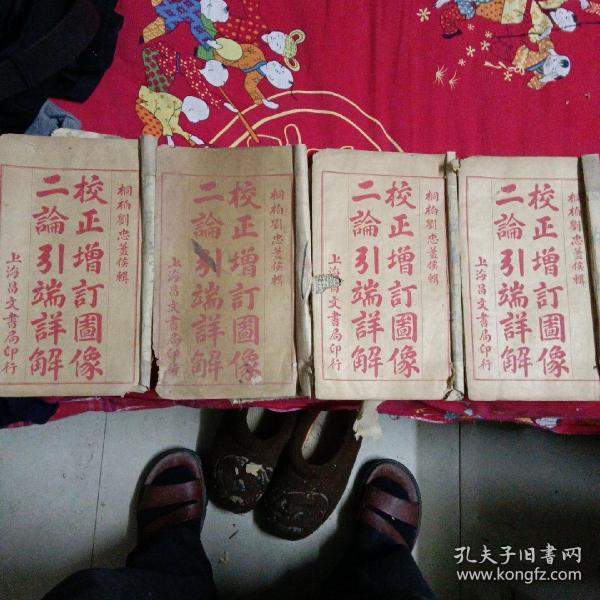 桐柏劉忠藎侯輯
校正增訂圖像
二論引端詳解
上海昌文書局印行
桐柏劉忠藎侯輯
校正增訂圖像
二論引端詳解
上海昌文書局印行
桐柏劉忠藎侯輯
校正增訂圖像
二論引端詳解
上海昌文書局印行
桐柏劉忠藎侯輯
校正增訂圖像
二論引端詳解
上海昌文書局印行
孔夫子旧书网
www.kongfz.com